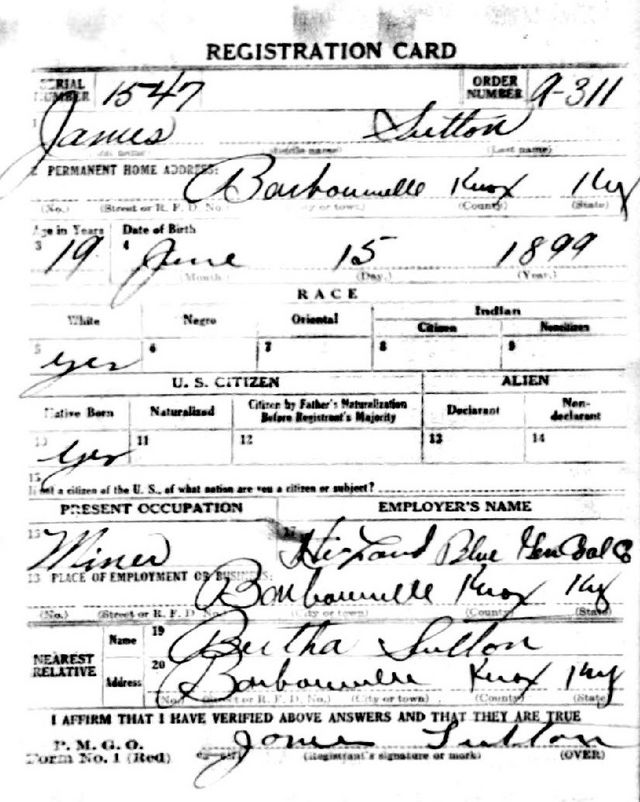 REGISTRATION CARD
SERIAL NUMBER 1547 ORDER NUMBER A-311
1 James Sutton
(Middle name) (Last name)
2 PERMANENT HOME ADDRESS:
Barbourville Knox Ky
(No.) (Street or R. F. D. No.) (City or town) (County) (State)
Age in Years Date of Birth
3 19 4 June 15 1899
(Month.) (Day.) (Year.)
RACE
White Negro Oriental Indian
Citizen Noncitizen
5 yes 6 7 8 9
U. S. CITIZEN ALIEN
Native Born Naturalized Citizen by Father's Naturalization Before Registrant's Majority Declarant Non-declarant
10 yes 11 12 13 14
15
If not a citizen of the U. S., of what nation are you a citizen or subject?
PRESENT OCCUPATION EMPLOYER'S NAME
Miner Blue Gem Coal Co
18 PLACE OF EMPLOYMENT OR BUSINESS:
Barbourville Knox Ky
(No.) (Street or R. F. D. No.) (City or town) (County) (State)
NEAREST RELATIVE
Name 19 Bertha Sutton
Address 20 Barbourville Knox Ky
(No.) (Street or R. F. D. No.) (City or town) (County) (State)
I AFFIRM THAT I HAVE VERIFIED ABOVE ANSWERS AND THAT THEY ARE TRUE
P. M. G. O.
Form No. 1 (Red) James Sutton
(Registrant's signature or mark) (OVER)